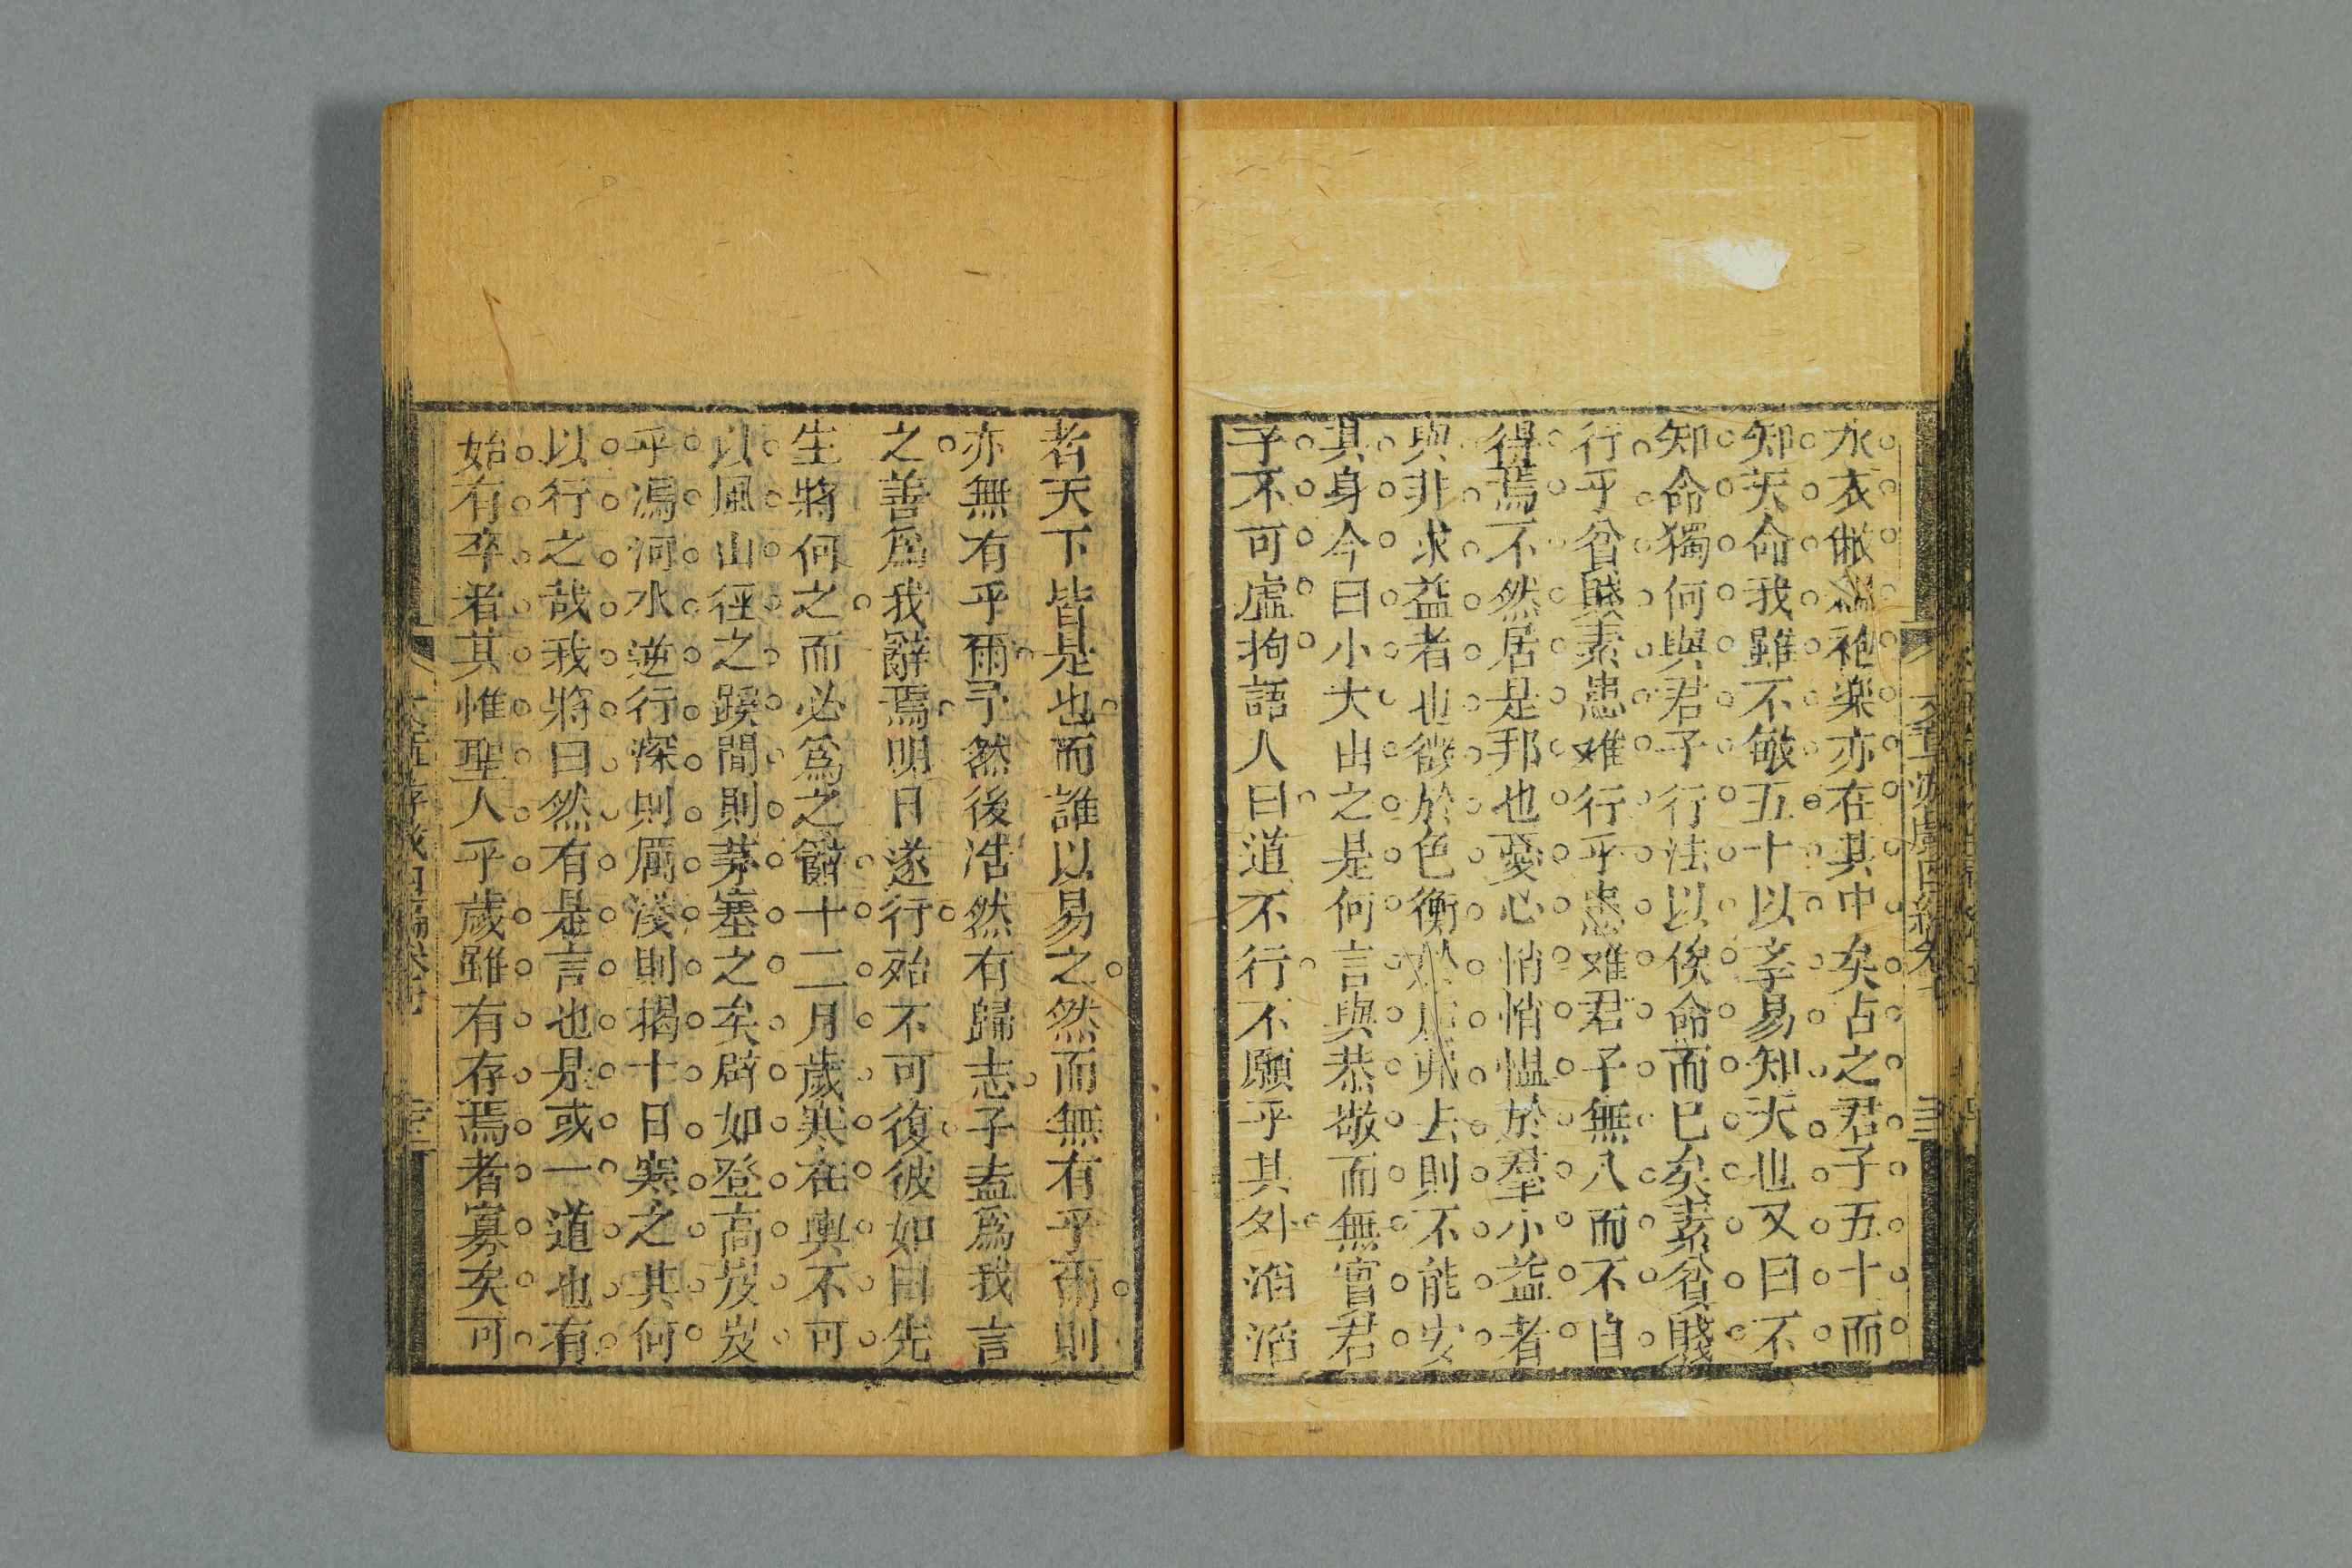 水衣敝縕袍樂亦在其中矣占之君子五十而
知天命我雖不敏五十以孝易知天也又曰不
知命獨何與君子行法以俟命而已矣素貧賤
行乎貧賤素患难行乎患难君子無入而不自
得焉不然居是邦也憂心悄悄愠於羣小益者
與非求益者也徵於色衡於慮夙去則不能安
其身今曰小大由之是何言與恭敬而無實君
子不可虛拘語人曰道不行不願乎其外滔滔
者天下皆是也而誰以易之然而無有乎爾則
亦無有乎爾予然後浩然有歸志子盍爲我言
之善爲我辭焉明日遂行殆不可復彼如曰先
生將何之而必爲之辭十二月歲寒在輿不可
以風山徑之蹊間則茅塞之矣辟如登高岌岌
乎馮河水逆行深則厲淺則揭十日寒之其何
以行之哉我將曰然有是言也是或一道也有
始有卒者其惟聖人乎歲雖有存焉者寡矣可